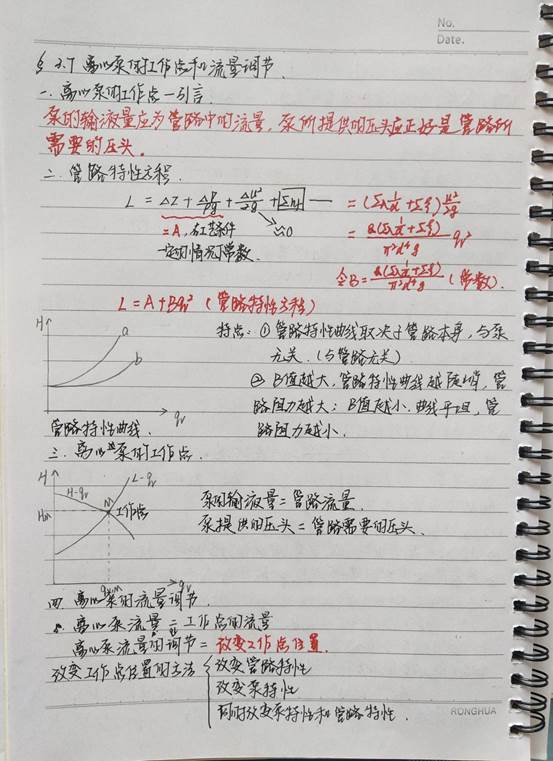 No.
Date.
§ 2.7 离心泵的工作点和流量调节.
一. 离心泵的工作点一引言.
泵的输液量应为管路中的流量, 泵所提供的压头应正好是管路所
需要的压头.
二. 管路特性方程.
L = ΔZ + ΔP/ρg + Δu²/2g + Σhf — = (Σλ l/d + Σζ) u²/2g
= A, 在工艺条件 ≈0 = 8(Σλ l/d + Σζ)/π²d⁴g qv²
一定的情况下常数.
令B = 8(Σλ l/d + Σζ)/π²d⁴g (常数).
L = A + Bqv² (管路特性方程)
H a b qv
特点: ① 管路特性曲线取决于管路本身, 与泵
无关. (与管路无关)
② B值越大, 管路特性曲线越陡峭, 管
路阻力越大; B值越小. 曲线平坦, 管
路阻力越小.
管路特性曲线.
三. 离心泵的工作点.
H H-qv L-qv M 工作点
泵的输液量 = 管路流量.
泵提供的压头 = 管路需要的压头.
qv
四. 离心泵的流量调节.
离心泵流量 = 工作点的流量
离心泵流量的调节 = 改变工作点位置.
改变工作点位置的方法 { 改变管路特性
改变泵特性
同时改变泵特性和管路特性.
RONGHUA